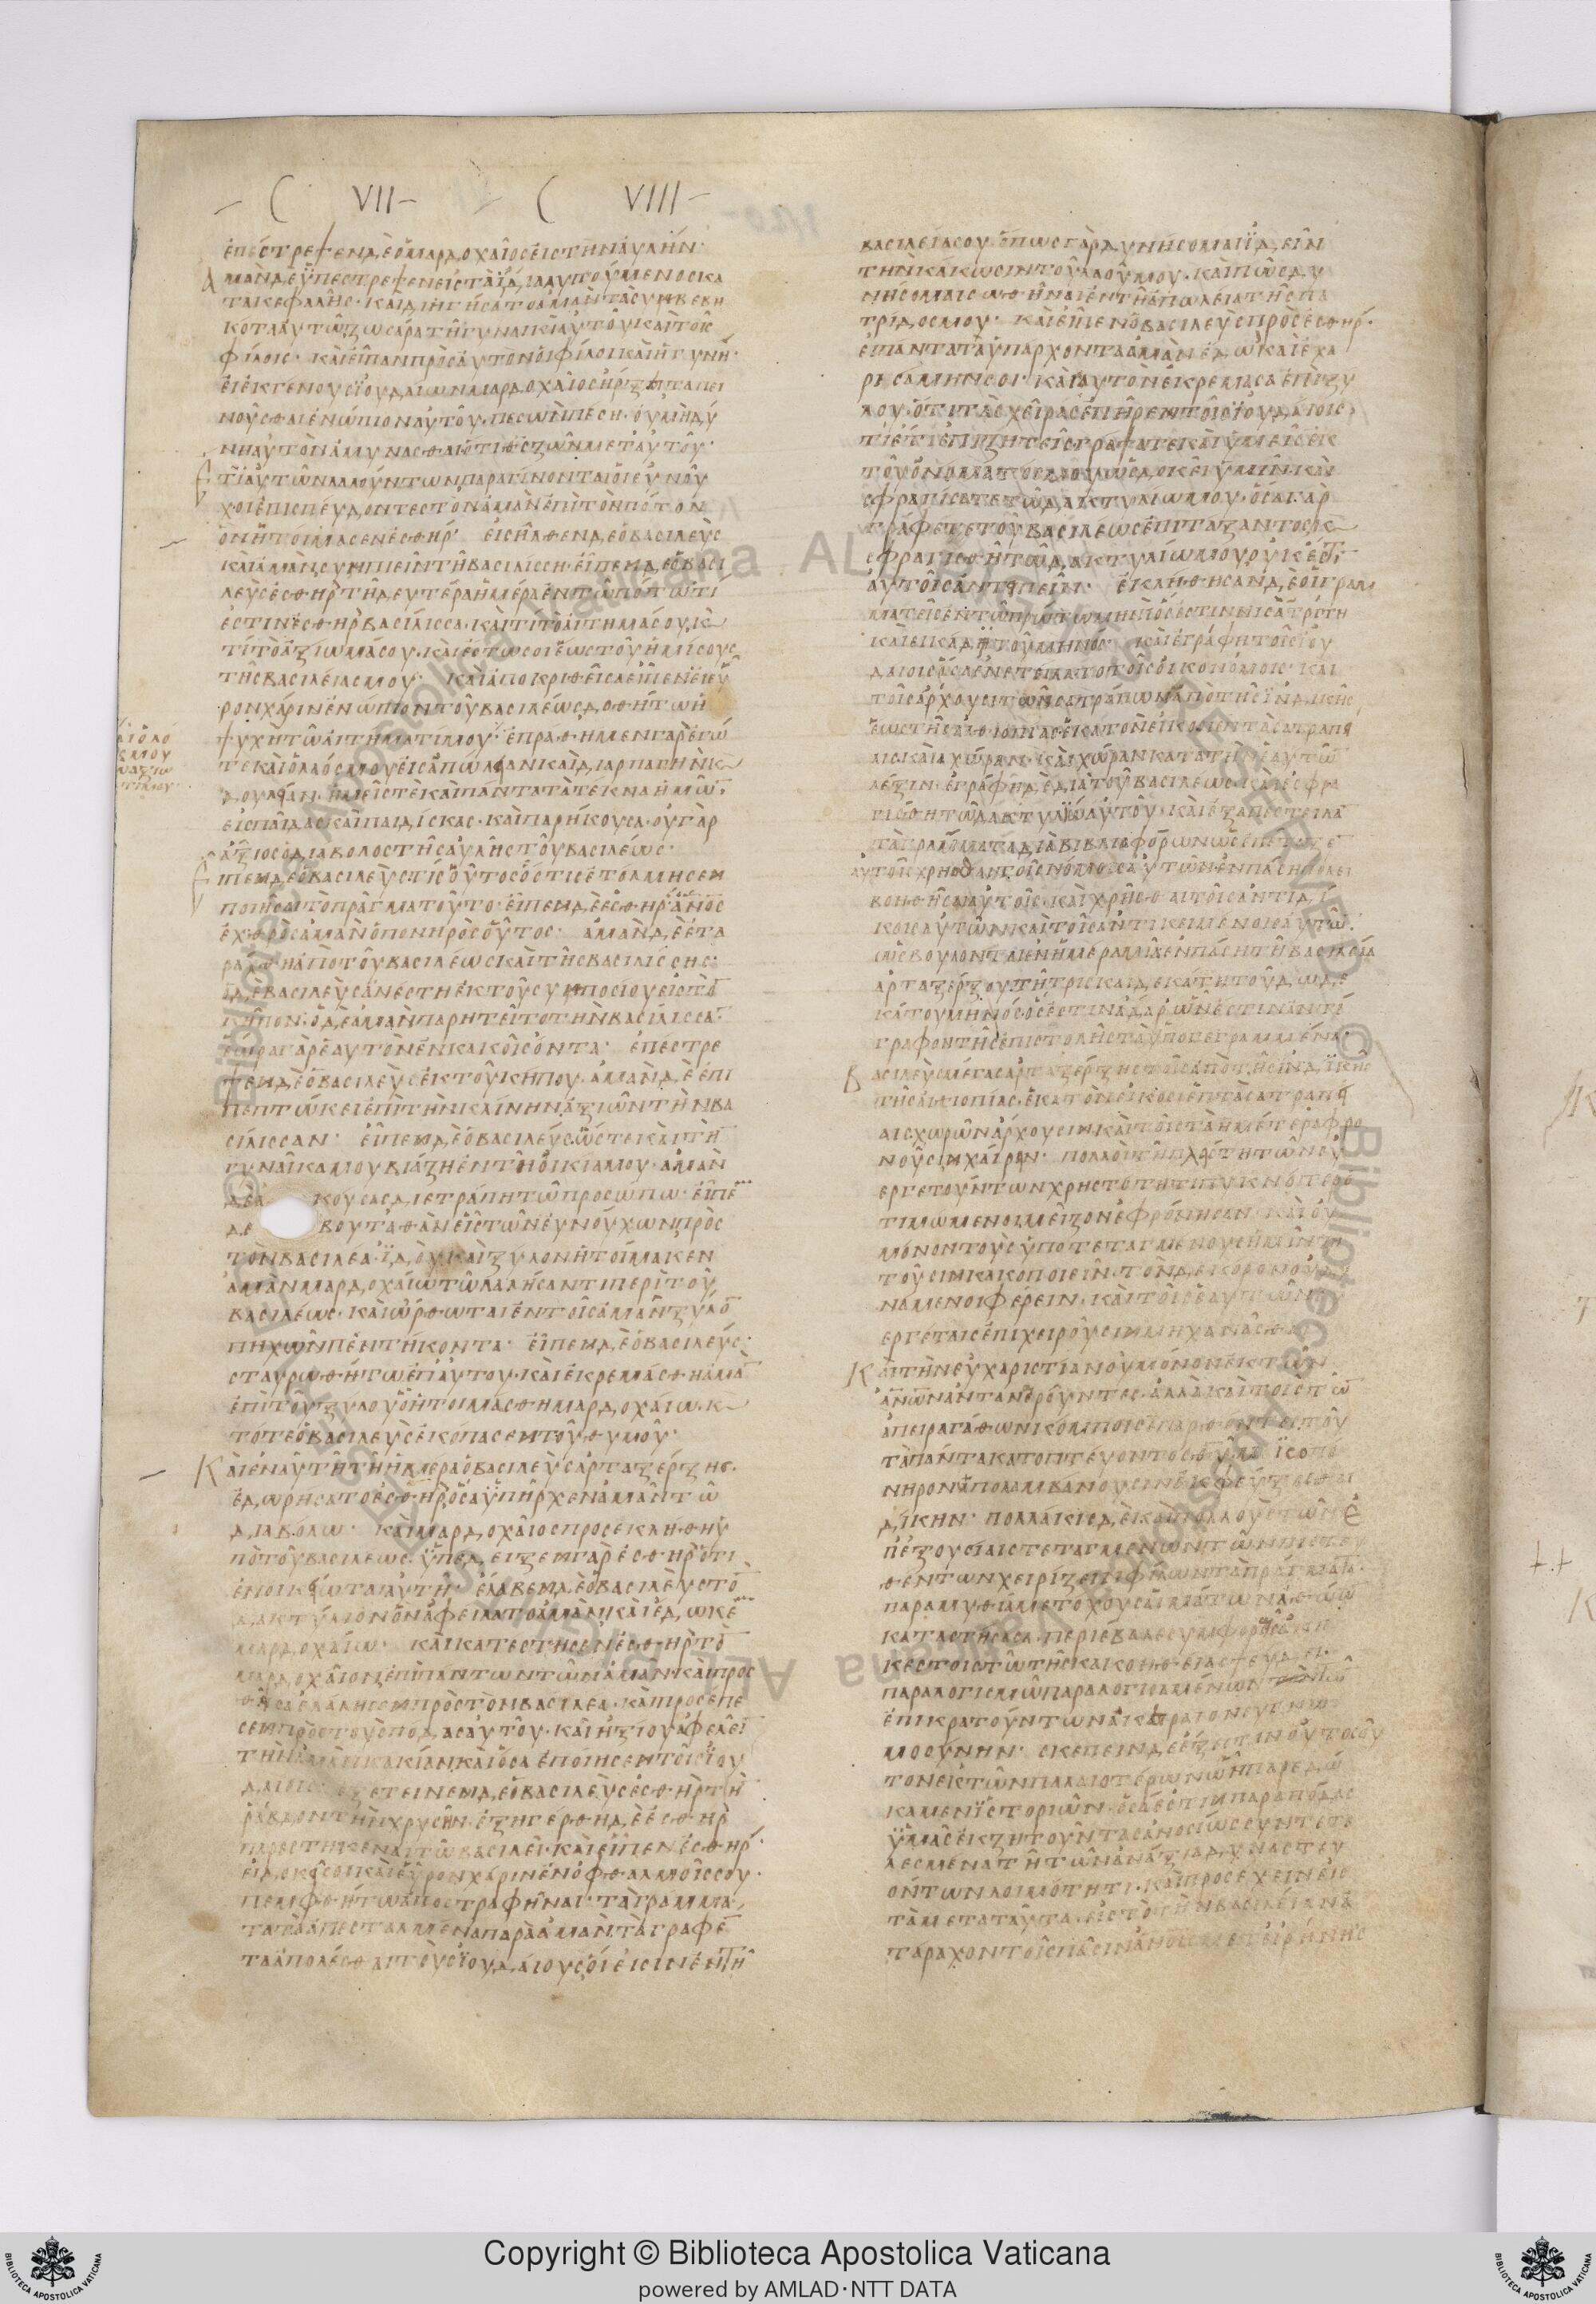 C VII C VIII
ἐπέστρεψεν δὲ ὁ μαρδοχαῖος εἰς τὴν αὐλήν·
ἀμὰν δὲ ὑπέστρεψεν εἰς τὰ ἴδια λυπούμενος κα
τὰ κεφαλῆς· καὶ διηγήσατο ἀμὰν τὰ συμβεβη
κότα αὐτῷ ζωσάρα τῇ γυναικὶ αὐτοῦ καὶ τοῖς
φίλοις· καὶ εἶπαν πρὸς αὐτὸν οἱ φίλοι καὶ ἡ γυνή·
εἰ ἐκ γένους ἰουδαίων μαρδοχαῖος ἦρξαι ταπει
νοῦσθαι ἐνώπιον αὐτοῦ· πεσὼν πέση· οὐ μὴ δύ
νη αὐτὸν ἀμύνασθαι ὅτι θς ζῶν μετ αὐτοῦ·
ἔτι αὐτῶν λαλούντων παραγίνονται οἱ εὐνοῦ
χοι ἐπισπεύδοντες τὸν ἀμὰν ἐπὶ τὸν πότον
ὃν ἡτοίμασεν ἐσθήρ· εἰσῆλθεν δὲ ὁ βασιλεὺς
καὶ ἀμὰν συμπιεῖν τῇ βασιλίσσῃ· εἶπεν δὲ ὁ βασι
λεὺς ἐσθὴρ τῇ δευτέρα ἡμέρα ἐν τῷ πότω τί
ἐστιν ἐσθὴρ βασίλισσα· καὶ τί τὸ αἴτημά σου κ
τί τὸ ἀξίωμά σου· καὶ ἔστω σοι ἕως τοῦ ἡμίσους
τῆς βασιλείας μου· καὶ ἀποκριθεῖσα εἶπεν εἰ εὗ
ρον χάριν ἐνώπιον τοῦ βασιλέως δοθήτω ἡ
ψυχὴ τῷ αἰτήματί μου· ἐπράθημεν γὰρ ἐγώ
τε καὶ ὁ λαός μου εἰς ἀπώλειαν καὶ διαρπαγὴν κ
δουλείαν ἡμεῖς τε καὶ πάντα τὰ τέκνα ἡμῶν
εἰς παῖδας καὶ παιδίσκας· καὶ παρήκουσα· οὐ γὰρ
ἄξιος ὁ διάβολος τῆς αὐλῆς τοῦ βασιλέως·
εἶπεν δὲ ὁ βασιλεὺς τίς οὗτος ὅστις ἐτόλμησεν
ποιῆσαι τὸ πρᾶγμα τοῦτο· εἶπεν δὲ ἐσθὴρ ἄνος
ἐχθρὸς ἀμὰν ὁ πονηρὸς οὗτος· ἀμὰν δὲ ἐτα
ράχθη ἀπὸ τοῦ βασιλέως καὶ τῆς βασιλίσσης·
ὁ δὲ βασιλεὺς ἀνέστη ἐκ τοῦ συμποσίου εἰς τὸ
κῆπον· ὁ δὲ ἀμὰν παρητεῖτο τὴν βασίλισσα
ἑώρα γὰρ ἑαυτὸν ἐν κακοῖς ὄντα· ἐπέστρε
ψεν δὲ ὁ βασιλεὺς ἐκ τοῦ κήπου· ἀμὰν δὲ ἐπι
πεπτώκει ἐπὶ τὴν κλίνην ἀξιῶν τὴν βα
σίλισσαν· εἶπεν δὲ ὁ βασιλεὺς ὥστε καὶ τὴ
γυναῖκά μου βιάζη ἐν τῇ οἰκία μου· ἀμὰν
δὲ ἀκούσας διετράπη τῷ προσώπω· εἶπε
δε βουγαθὰν εἷς τῶν εὐνούχων πρὸς
τὸν βασιλέα· ἰδοὺ καὶ ξύλον ἡτοίμακεν
ἀμὰν μαρδοχαίω τῷ λαλήσαντι περὶ τοῦ
βασιλέως· καὶ ὤρθωται ἐν τοῖς ἀμὰν ξύλο
πηχῶν πεντήκοντα· εἶπεν δὲ ὁ βασιλεύς·
σταυρωθήτω ἐπ αὐτοῦ· καὶ ἐκρεμάσθη ἀμὰ
ἐπὶ τοῦ ξύλου ὃ ἡτοιμάσθη μαρδοχαίω· κ
τότε ὁ βασιλεὺς ἐκόπασεν τοῦ θυμοῦ·
Καὶ ἐν αὐτῇ τῇ ἡμέρα ὁ βασιλεὺς ἀρταξέρξης
ἐδωρήσατο ἐσθὴρ ὅσα ὑπῆρχεν ἀμὰν τῷ
διαβόλω· καὶ μαρδοχαῖος προσεκλήθη ὑ
πὸ τοῦ βασιλέως· ὑπέδειξεν γὰρ ἐσθὴρ ὅτι
ἐνοικείωται αὐτῇ· ἔλαβεν δὲ ὁ βασιλεὺς τὸ
δακτύλιον ὃν ἀφείλατο ἀμὰν καὶ ἔδωκε
μαρδοχαίω· καὶ κατέστησεν ἐσθὴρ τὸ
μαρδοχαῖον ἐπὶ πάντων τῶν ἀμάν· καὶ προς
θεῖσα ἐλάλησεν πρὸς τὸν βασιλέα· καὶ προσέπε
σεν πρὸς τοὺς πόδας αὐτοῦ· καὶ ἠξίου ἀφελεῖ
τὴν ἀμὰν κακίαν καὶ ὅσα ἐποίησεν τοῖς ἰου
δαίοις· ἐξέτεινεν δὲ ὁ βασιλεὺς ἐσθὴρ τὴ
ῥάβδον τὴν χρυσῆν· ἐξηγέρθη δὲ ἐσθὴρ
παρεστηκέναι τῷ βασιλεῖ· καὶ εἶπεν ἐσθήρ·
εἰ δοκεῖ σοι καὶ εὗρον χάριν ἐν ὀφθαλμοῖς σου·
πεμφθήτω ἀποστραφῆναι τὰ γράμμα
τα τὰ ἀπεσταλμένα παρὰ ἀμὰν τὰ γραφέ
τα ἀπολέσθαι τοὺς ἰουδαίους οἵ εἰσιν ἐν τῇ
βασιλεία σου· πῶς γὰρ δυνήσομαι ἰδεῖν
τὴν κάκωσιν τοῦ λαοῦ μου· καὶ πῶς δυ
νήσομαι σωθῆναι ἐν τῇ ἀπωλεία τῆς πα
τρίδος μου· καὶ εἶπεν ὁ βασιλεὺς πρὸς ἐσθήρ·
εἰ πάντα τὰ ὑπάρχοντα ἀμὰν ἔδωκα καὶ ἐχα
ρισάμην σοι· καὶ αὐτὸν ἐκρέμασα ἐπὶ ξύ
λου· ὅτι τὰς χεῖρας ἐπῆρεν τοῖς ἰουδαίοις
τί ἔτι ἐπιζητεῖς γράψατε καὶ ὑμεῖς ἐκ
τοῦ ὀνόματός μου ὡς δοκεῖ ὑμῖν· καὶ
σφραγίσατε τῷ δακτυλίω μου· ὅσα γὰρ
γράφεται τοῦ βασιλέως ἐπιτάξαντος κ
σφραγισθῇ τῷ δακτυλίω μου· οὐκ ἔστι
αὐτοῖς ἀντειπεῖν· ἐκλήθησαν δὲ οἱ γραμ
ματεῖς ἐν τῷ πρώτω μηνὶ ὅς ἐστιν νισὰ τρίτη
καὶ εἰκάδι τοῦ μηνός· καὶ ἐγράφη τοῖς ἰου
δαίοις ὅσα ἐνετείλατο τοῖς οἰκονόμοις· καὶ
τοῖς ἄρχουσι τῶν σατραπῶν ἀπὸ τῆς ἰνδικῆς
ἕως τῆς αἰθιοπίας ἑκατὸν εἰκοσιεπτὰ σατραπεί
αις κατὰ χώραν καὶ χώραν κατὰ τὴν ἑαυτῶ
λέξιν· ἐγράφη δὲ διὰ τοῦ βασιλέως· καὶ ἐσφρα
γίσθη τῷ δακτυλίω αὐτοῦ· καὶ ἐξαπέστειλα
τὰ γράμματα διὰ βιβλιοφόρων ὡς ἐπέταξε
αὐτοῖς χρῆσθαι τοῖς νόμοις αὐτῶν ἐν πάση πόλει
βοηθῆσαι αὐτοῖς· καὶ χρῆσθαι τοῖς ἀντιδί
κοις αὐτῶν καὶ τοῖς ἀντικειμένοις αὐτῶ
ὡς βούλονται ἐν ἡμέρα μιᾶ ἐν πάση τῇ βασιλεία
ἀρταξέρξου τῇ τρισκαιδεκάτη τοῦ δωδε
κάτου μηνὸς ὅς ἐστιν ἀδάρ· ὧν ἐστιν ἀντί
γραφον τῆς ἐπιστολῆς τὰ ὑπογεγραμμένα·
Βασιλεὺς μέγας ἀρταξέρξης τοῖς ἀπὸ τῆς ἰνδικῆς
τῆς αἰθιοπίας ἑκατὸν εἰκοσιεπτὰ σατραπεί
αις χωρῶν ἄρχουσιν καὶ τοῖς τὰ ἡμέτερα φρο
νοῦσιν χαίρειν· πολλοὶ τῇ πλείστη τῶν εὐ
εργετούντων χρηστότητι πυκνότερο
τιμώμενοι μεῖζον ἐφρόνησαν· καὶ οὐ
μόνον τοὺς ὑποτεταγμένους ἡμῖν ζη
τοῦσιν κακοποιεῖν· τόν δε κόρον οὐ δυ
νάμενοι φέρειν· καὶ τοῖς ἑαυτῶν εὐ
εργέταις ἐπιχειροῦσιν μηχανᾶσθαι
Καὶ τὴν εὐχαριστίαν οὐ μόνον ἐκ τῶν
ἀνων ἀνταναιροῦντες· ἀλλὰ καὶ τοῖς τῶ
ἀπειραγάθων κόμποις ἐπαρθέντες τοῦ
τὰ πάντα κατοπτεύοντος θυ μισοπό
νηρον ὑπολαμβάνουσιν ἐκφεύξεσθαι
δίκην· πολλάκις δὲ καὶ πολλοὺς τῶν ἐ
π ἐξουσίαις τεταγμένων τῶν πιστευ
θέντων χειρίζειν φίλων τὰ πράγματα
παραμυθία μετόχους αἱμάτων ἀθώω
καταστήσασα περιέβαλε συμφοραῖς ἀνη
κέστοις τῷ τῆς κακοηθείας ψευδεῖ
παραλογισμῷ παραλογισαμένων τὴν τῶ
ἐπικρατούντων ἀκέραιον εὐγνωμο
μοσύνην· σκοπεῖν δὲ ἔξεστιν οὐ τοσοῦ
τον ἐκ τῶν παλαιοτέρων ὧν παρεδώ
καμεν ἱστοριῶν· ὅσα ἐστὶν παρὰ πόδας
ὑμᾶς ἐκζητοῦντας ἀνοσίως συντετε
λεσμένα τῇ τῶν ἀνάξια δυναστευ
όντων λοιμότητι· καὶ προσέχειν εἰς
τὰ μετὰ ταῦτα εἰς τὸ τὴν βασιλείαν ἀ
τάραχον τοῖς πᾶσιν ἀνοις μετ εἰρήνης
Copyright © Biblioteca Apostolica Vaticana
powered by AMLAD·NTT DATA